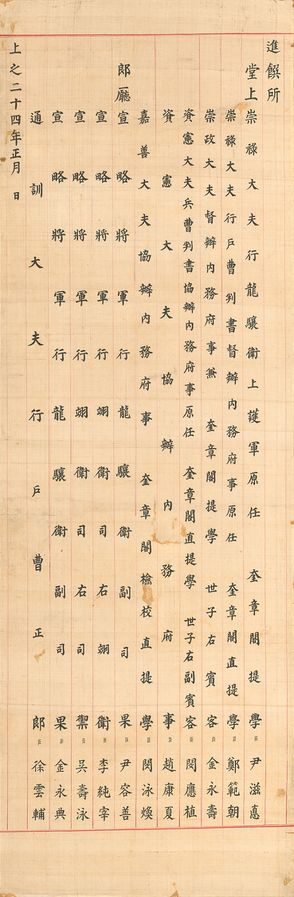 進饌所
堂上 崇祿大夫行龍驤衛上護軍原任 奎章閣提學臣尹滋悳
崇祿大夫行戶曹判書督辦內務府事原任 奎章閣直提學臣鄭範朝
崇政大夫督辦內務府事兼 奎章閣提學 世子右賓客臣金永壽
資憲大夫兵曹判書協辦內務府事原任 奎章閣直提學 世子右副賓客臣閔應植
資憲大夫協辦內務府事臣趙康夏
嘉善大夫協辦內務府事 奎章閣檢校直提學臣閔泳煥
郎廳 宣略將軍行龍驤衛副司果臣尹容善
宣略將軍行翊衛司右翊衛臣李純宰
宣略將軍行翊衛司右司禦臣吳壽泳
宣略將軍行龍驤衛副司果臣金永典
通訓大夫行戶曹正郎臣徐雲輔
上之二十四年正月 日